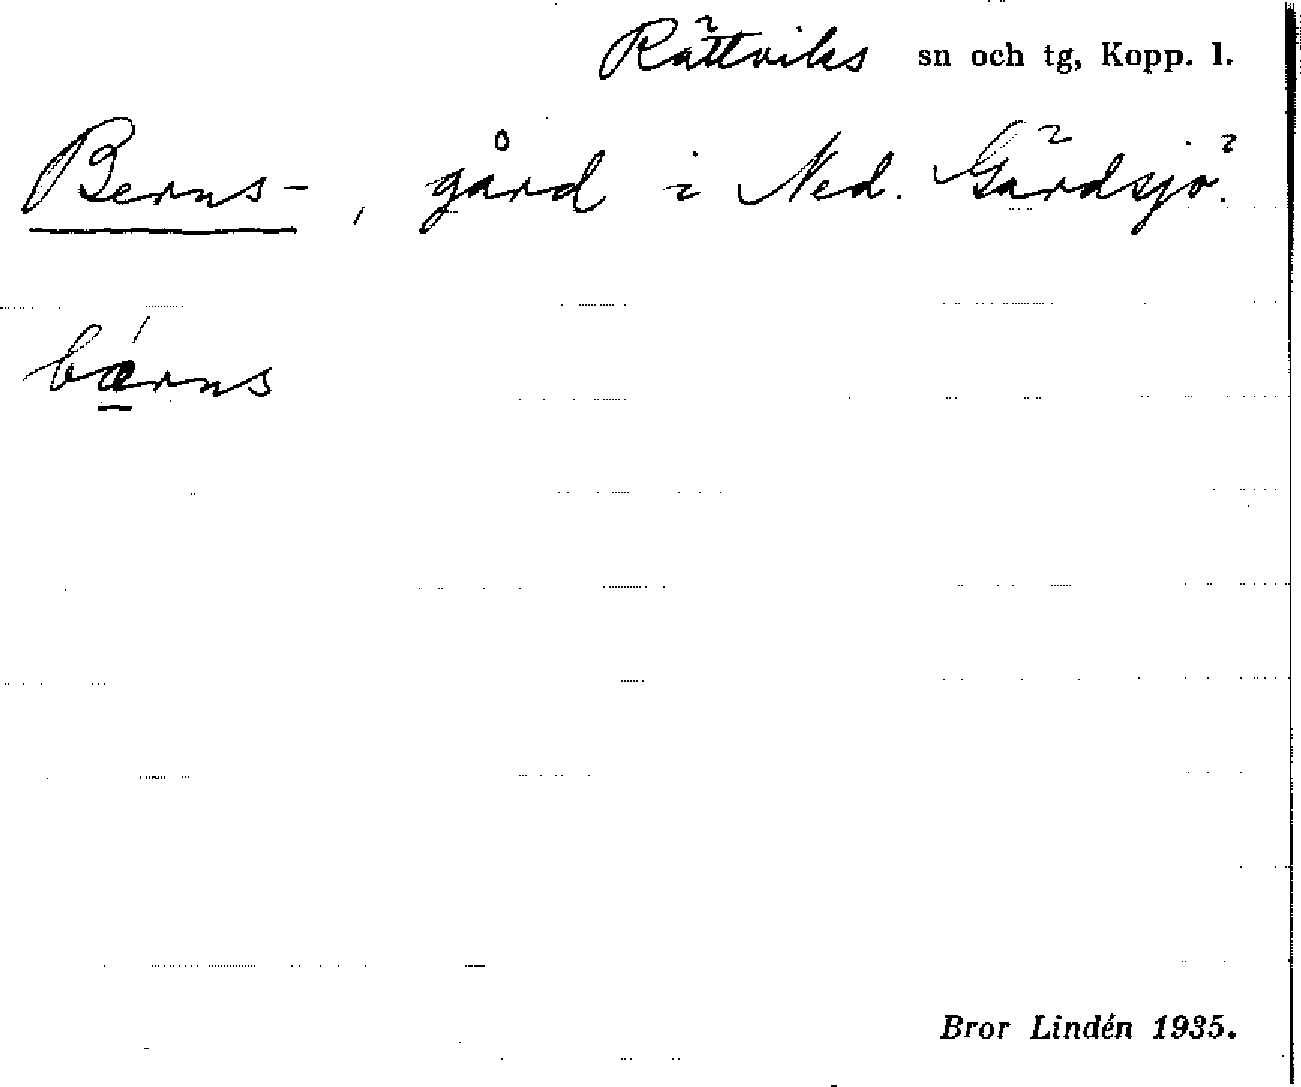 Rättviks sn och tg, Kopp. l.
Berns-, gård i Ned. Gärdsjö.
bǽ̠rns
Bror Lindén 1935.